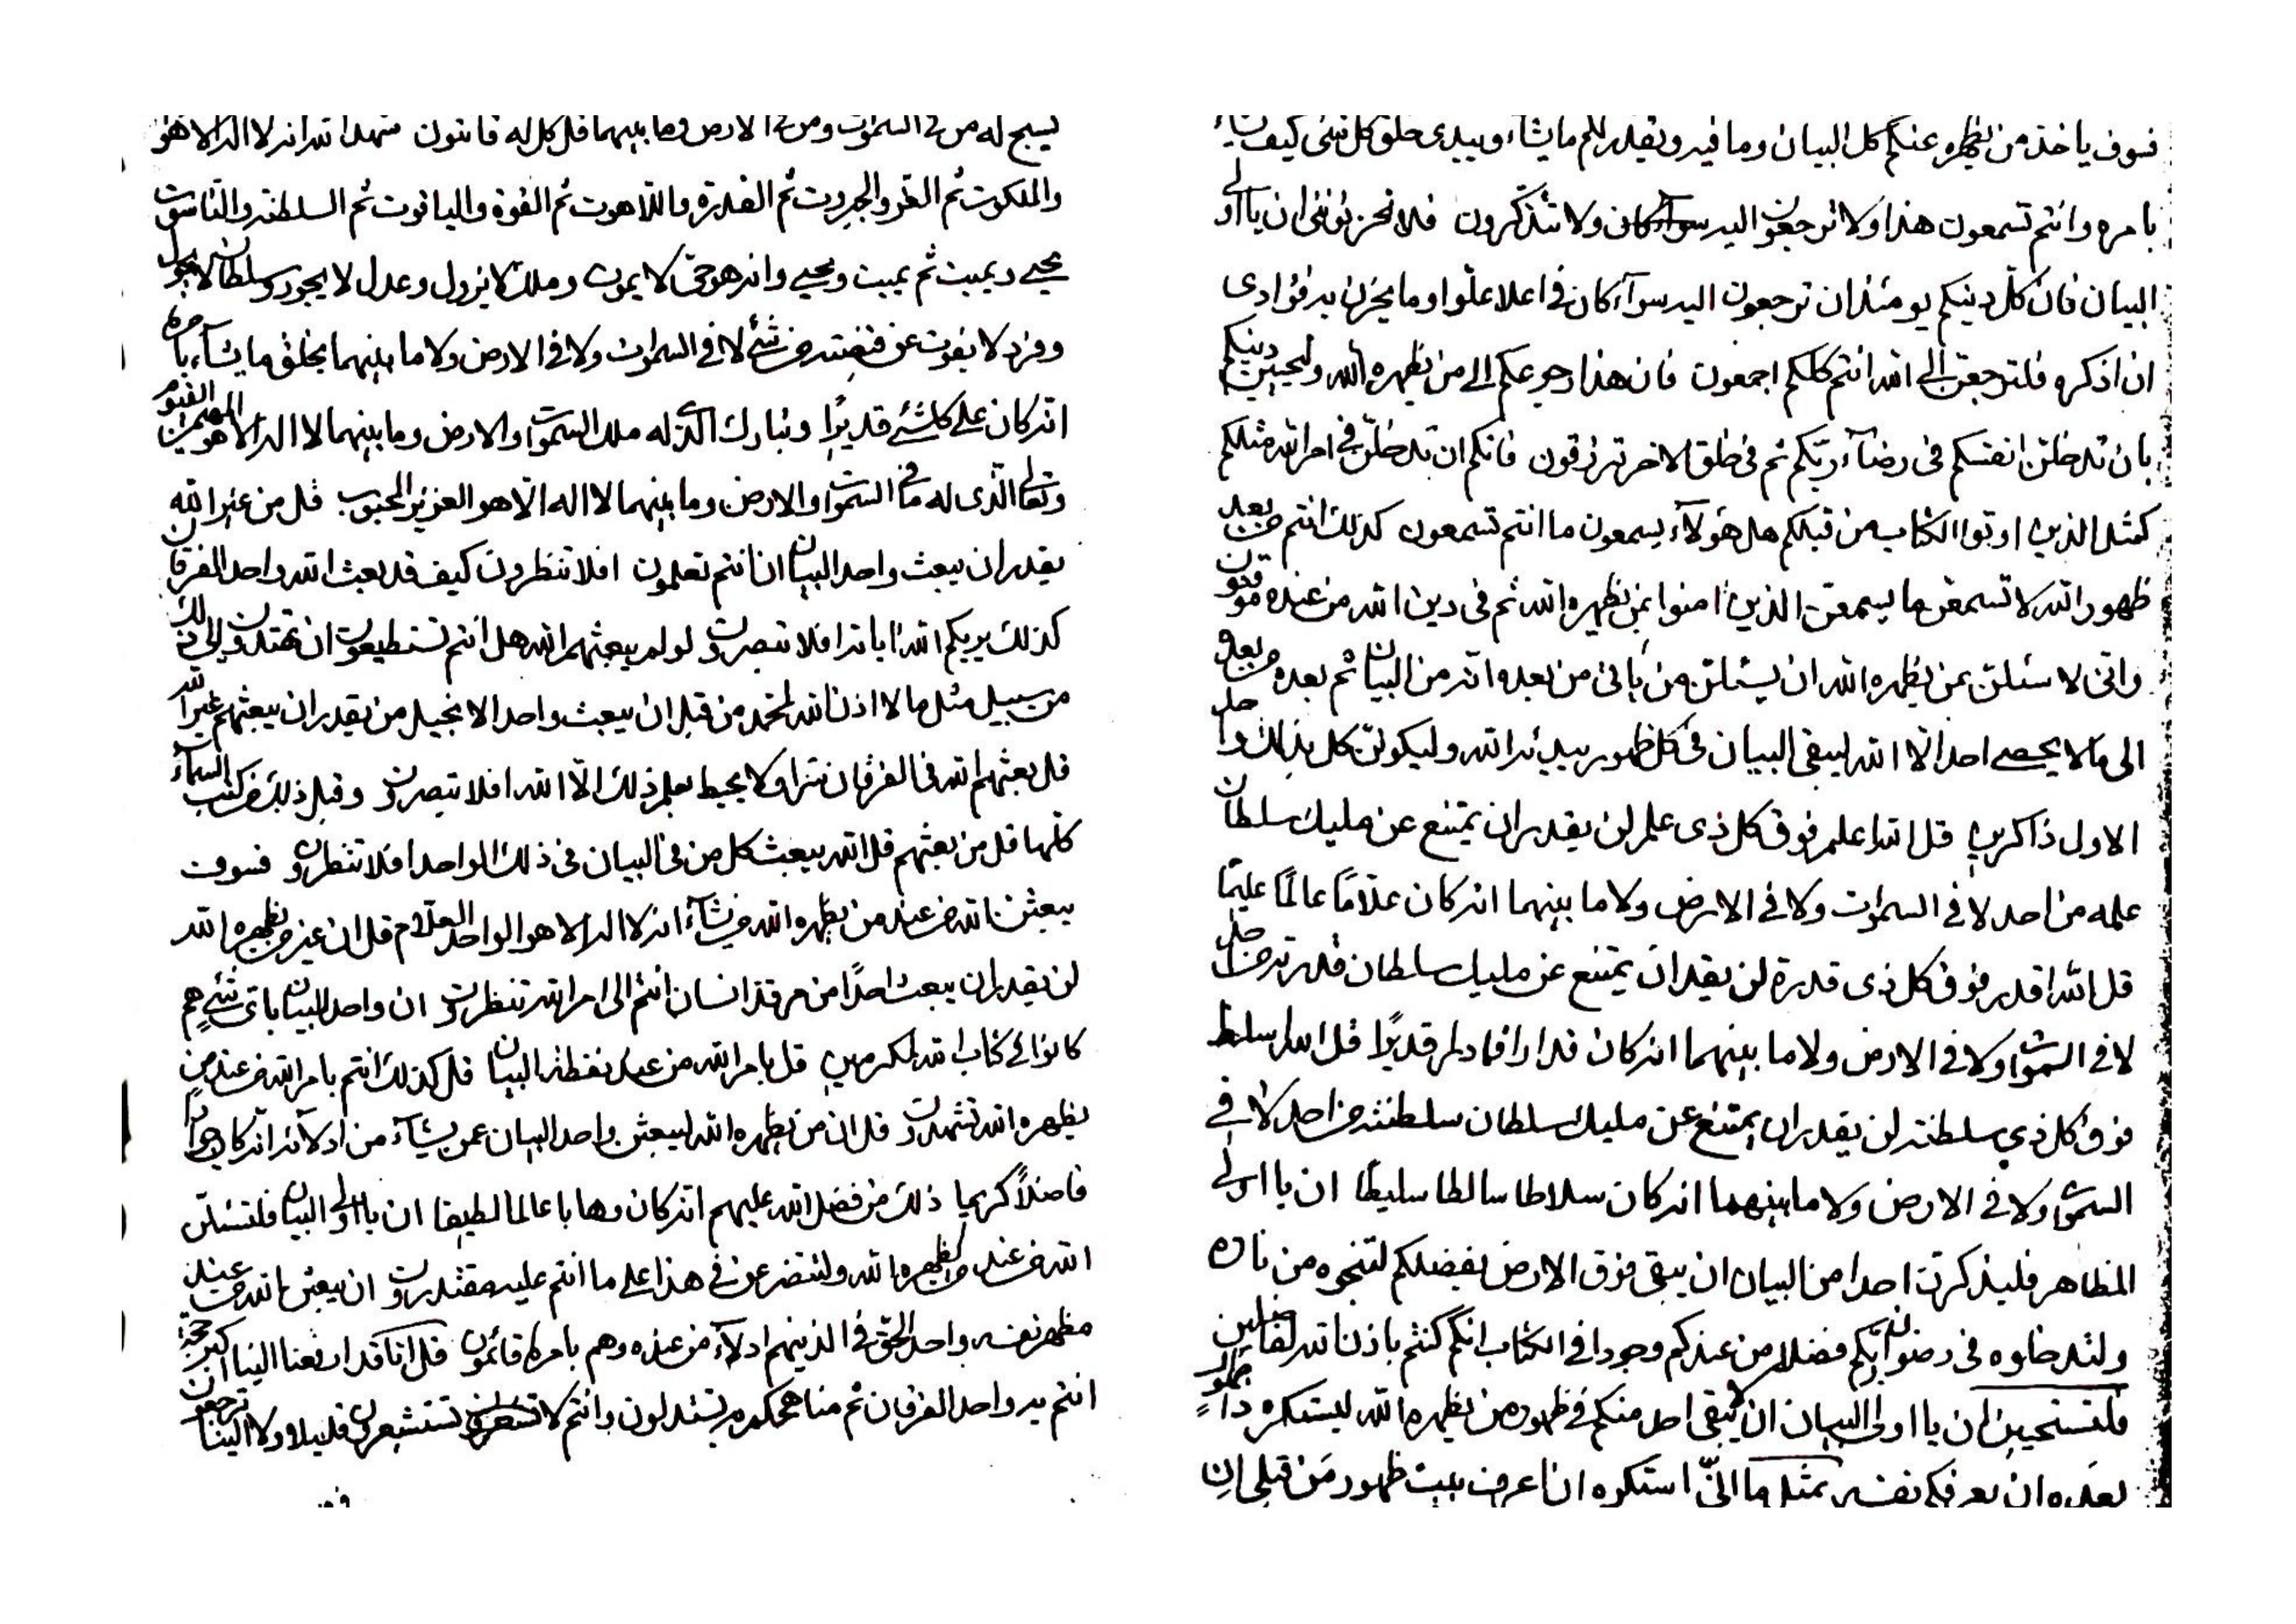 فسوف ياخذ من يظهره عنكم كل البيان وما فيه ويقدر لكم ما يشاء ويبدى خلق كل شئ كيف يشاء
بامره وانتم تسمعون هذا ولا ترجعون اليه كان ولا تتذكرون فلا تحزنونني ان يا اولى
البيان فان كل دينكم يومئذ ان ترجعون اليه سوآء كان فى اعلا علو او ما يحزن به فؤادى
ان اذكره فلترجعن الى الله انتم كلكم اجمعون فان هذا رجوعكم الى من يظهره الله ولتحيين دينكم
بان تدخلن انفسكم فى رضآء ربكم ثم فى خلق الاخر ترزقون فانكم ان تدخلن فى امر الله مثلكم
كمثل الذين اوتوا الكتاب من قبلكم هل هؤلآء يسمعون ما انتم تسمعون كذلك انتم من بعد
ظهور الله لا تسمعن ما يسمعن الذين امنوا بمن يظهره الله ثم فى دين الله من عنده موقنون
وانى لاسئلن عمن يظهره الله ان يسئلن من ياتى من بعده انه من البيان ثم بعده من بعد
الى ما لا يحصى احد الا الله ليبقى البيان فى كل ظهور يبدئه الله وليكونن كل بذلك
الاول ذاكرين قل الله اعلم فوق كل ذى علم لن يقدر ان يمتنع عن مليك سلطان
علمه من احد لا فى السموات ولا فى الارض ولا ما بينهما انه كان علاما عالما عليما
قل الله اقدر فوق كل ذى قدرة لن يقدر ان يمتنع عن مليك سلطان قدرته من احد
لا فى السموات ولا فى الارض ولا ما بينهما انه كان قدارا قادرا قديرا قل الله اسلط
فوق كل ذى سلطنة لن يقدر ان يمتنع عن مليك سلطان سلطنته من احد لا فى
السموات ولا فى الارض ولا ما بينهما انه كان سلاطا سالطا سليطا ان يا اولى
المظاهر فليذكرن احدا من البيان ان يبقى فوق الارض بفضلكم لتنجوه من ناره
ولتدخلوه فى رضوان ربكم فضلا من عندكم وجودا فى الكتاب انكم كنتم باذن الله لفاضلين
فلتستحيين ان يا اولى البيان ان يبقى احد منكم فى ظهور من يظهره الله ليستكره
بعده ان يعرفكم نفسه بمثل ما انى استكره ان اعرف بيت ظهور من قبلى ان
يسبح له من فى السموات ومن فى الارض وما بينهما قل كل له قانتون شهد الله انه لا اله الا هو
والملكوت ثم العز والجبروت ثم القدرة واللاهوت ثم القوة والياقوت ثم السلطنة والناسوت
يحيى ويميت ثم يميت ويحيى وانه هو حى لا يموت وملك لا يزول وعدل لا يجور وسلطان لا يحول
وفرد لا يفوت عن قبضته من شئ لا فى السموات ولا فى الارض ولا ما بينهما يخلق ما يشآء بامره
انه كان على كلشئ قديرا وتبارك الذى له ملك السموات والارض وما بينهما لا اله الا هو المهيمن القيوم
وتعالى الذى له ما فى السموات والارض وما بينهما لا اله الا هو العزيز المحبوب قل من غير الله
يقدر ان يبعث واحد البيان ان انتم تعلمون افلا تنظرون كيف قد بعث الله واحد الفرقان
كذلك يريكم الله اياته افلا تبصرون لو لم يبعثهم الله هل انتم تستطيعون ان تهتدون الى ذلك
من سبيل مثل ما لا اذن الله لمحمد من قبل ان يبعث واحد الانجيل من يقدر ان يبعثهم غير الله
قل بعثهم الله فى الفرقان سرا ولا يحيط بعلم ذلك الا الله افلا تبصرون وقبل ذلك من كتب السمآء
كلها قل من بعثهم قل الله يبعث كل من فى البيان فى ذلك الواحد افلا تنظرون فسوف
يبعثن الله من عند من يظهره الله من يشآء انه لا اله الا هو الواحد العلام قل ان غير من يظهره الله
لن يقدر ان يبعث احدا من مرقد انسان انتم الى امر الله تنظرون ان واحد البيان باى شئ هم
كانوا فى كتاب الله لمكرمين قل بامر الله من عند نقطة البيان قل كذلك انتم بامر الله من عند من
يظهره الله تشهدون قل ان من يظهره الله ليبعثن واحد البيان عمن يشآء من ادلآئه انه كان جوادا
فاضلا كريما ذلك من فضل الله عليهم انه كان وهابا عالما لطيفا ان يا اولى البيان فلتسئلن
الله من عند من يظهره الله ولتتضرعن فى هذا على ما انتم عليه مقتدرون ان يبعثن الله من عند
مظهر نفسه واحد الحق فى الذينهم ادلآء من عنده وهم بامره قائمون قل انا قد اربعنا البيان اكبر حجة
انتم به واحد الفرقان ثم مناهجكم تستدلون وانتم لا تستشعرون قليلا ولا الينا ترجعون